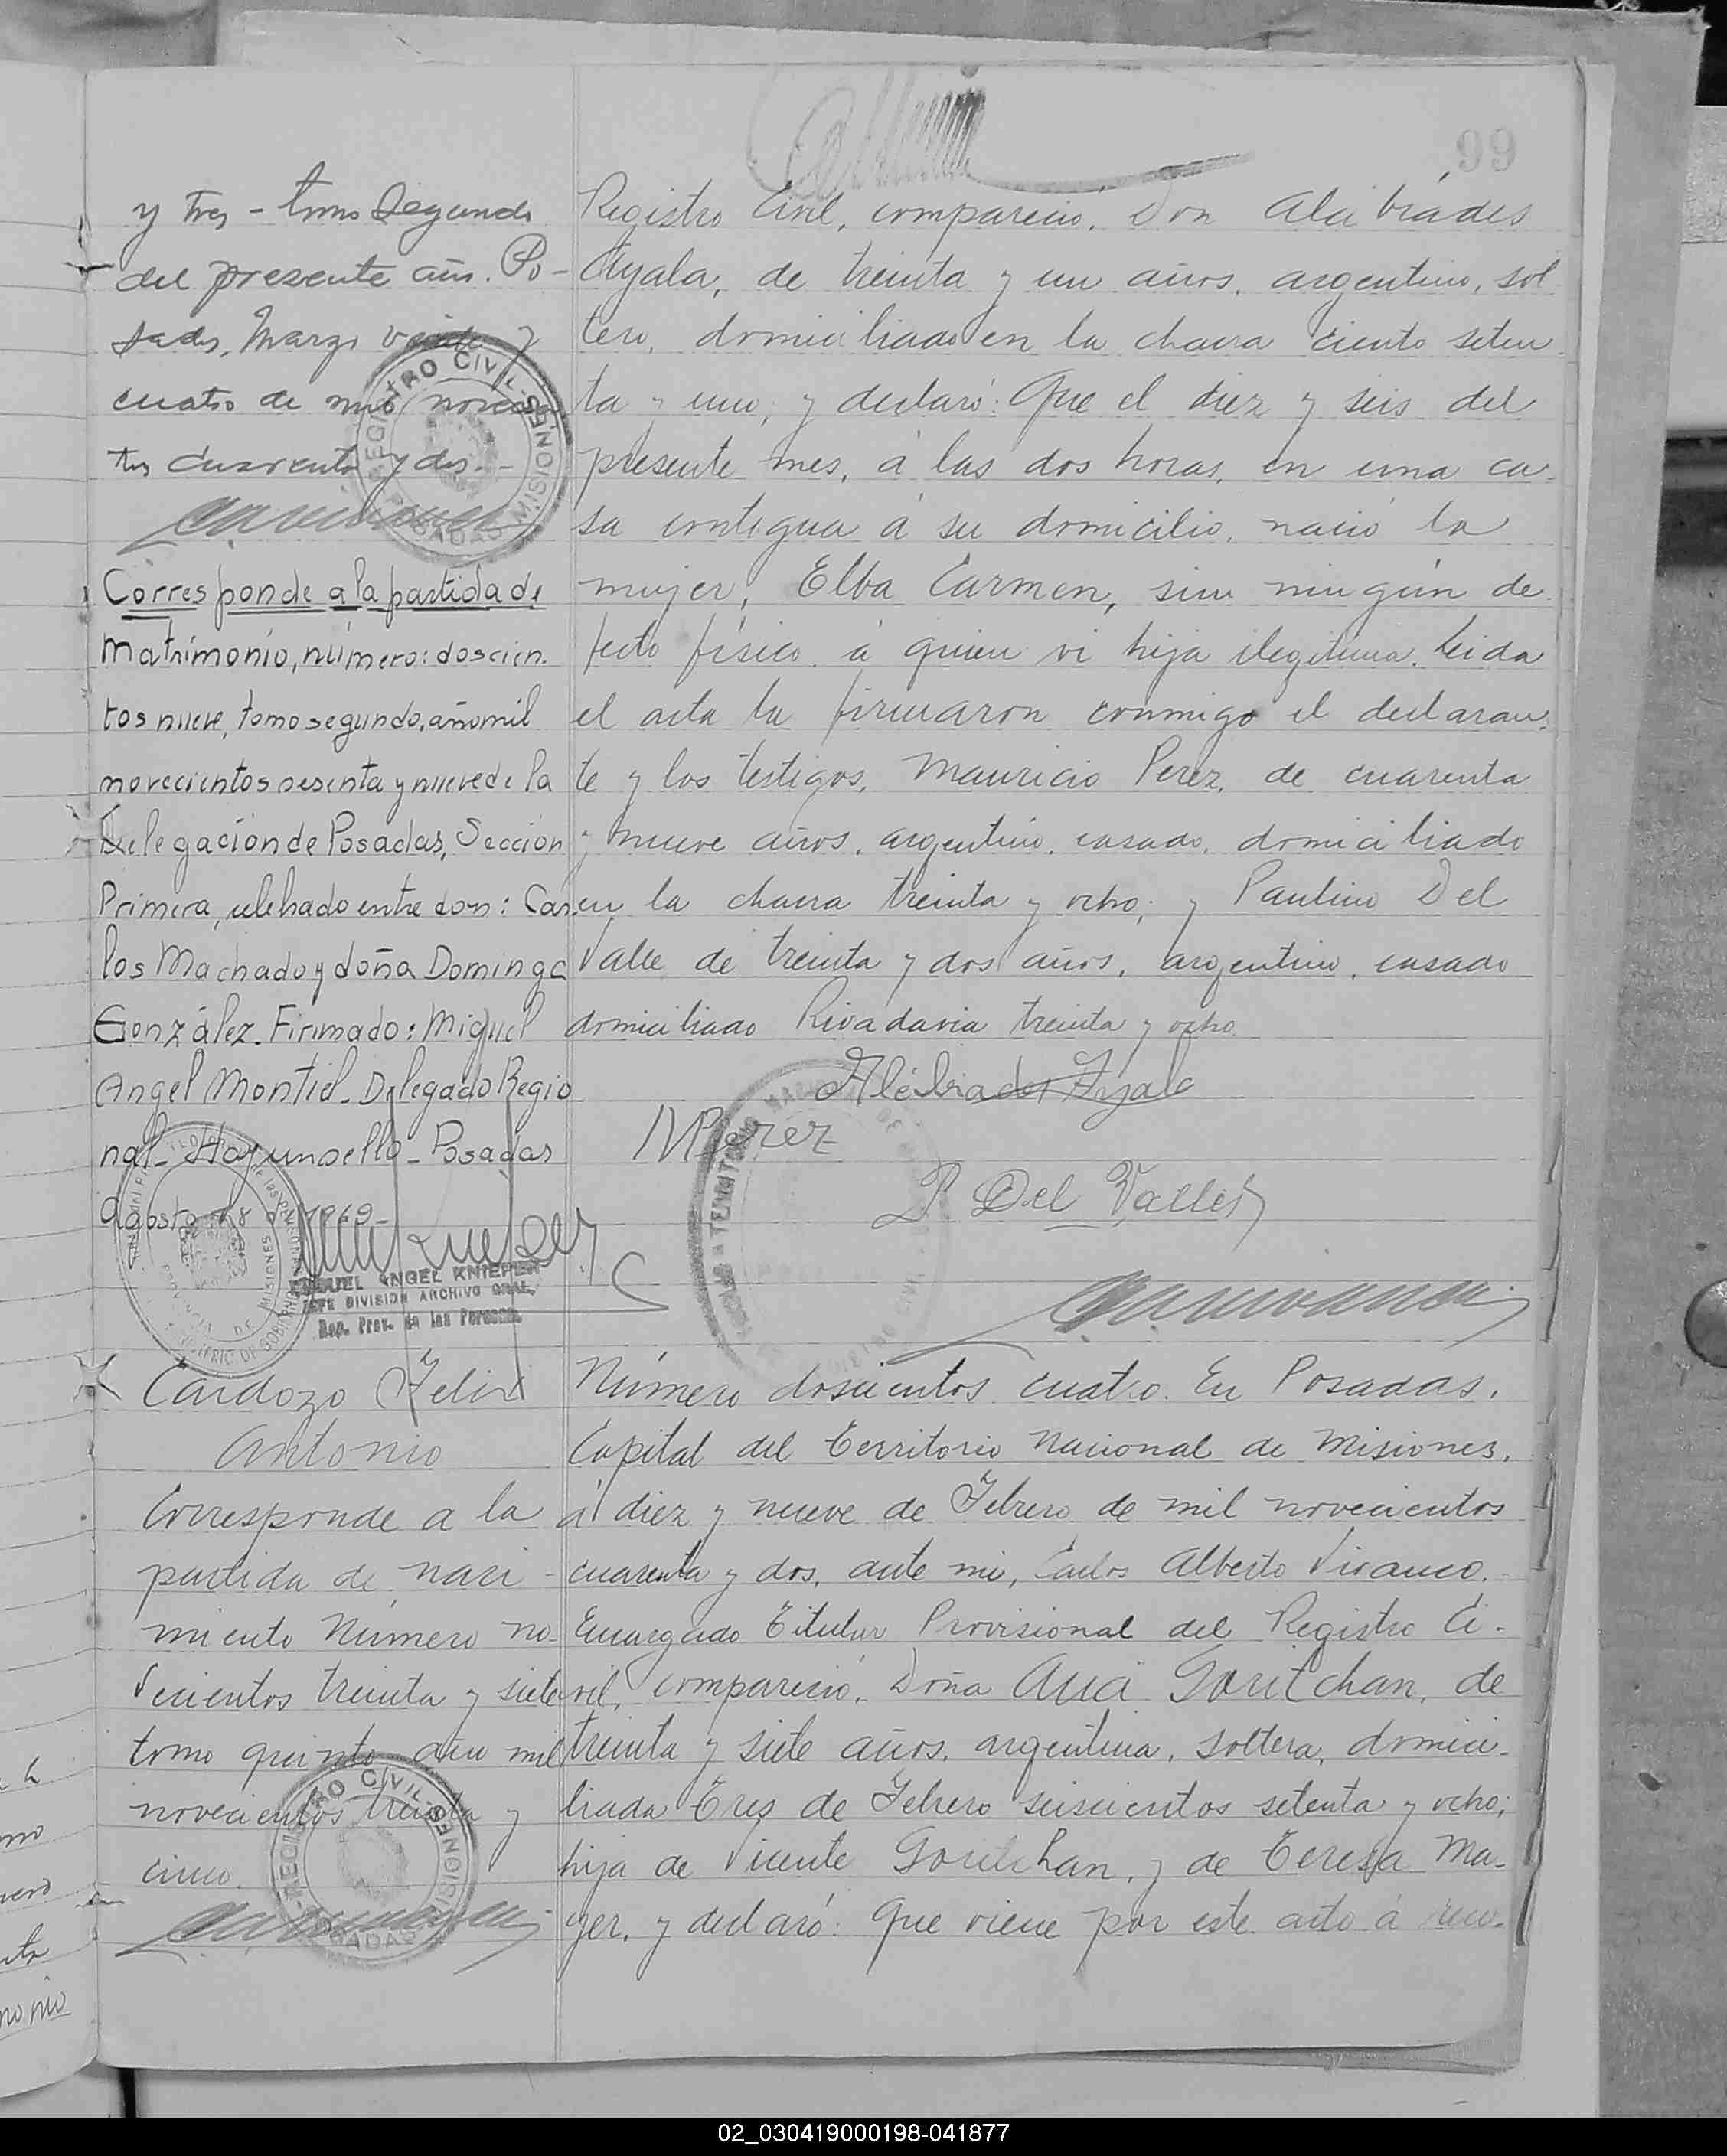 99
y tres - tomo Segundo
del presente año. Po-
sadas, Marzo veinte y
cuatro de mil novecien
tos cuarenta y dos.-
Corresponde a la partida de
Matrimonio, número: doscien.
tos nueve, tomo segundo, año mil
novecientos sesenta y nueve de la
Delegación de Posadas, Sección
Primera, celebrado entre don: Car
los Machado y doña Dominga
González. Firmado: Miguel
Angel Montiel - Delegado Regio
nal - Hay un sello - Posadas
Agosto 18 de 1969-
MIGUEL ANGEL KNIEPER
JEFE DIVISION ARCHIVO GRAL.
Rep. Prov. de las Personas
Registro Civil, compareció, Don Alcibíades
Ayala, de treinta y un años, argentino, sol
tero, domiciliado en la chacra ciento seten
ta y uno, y declaró: Que el diez y seis del
presente mes, á las dos horas, en una ca-
sa contigua á su domicilio, nació la
mujer, Elba Carmen, sin ningún de
fecto físico á quien vi hija ilegítima. Leida
el acta la firmaron conmigo el declaran-
te y los testigos, Mauricio Perez, de cuarenta
y nueve años, argentino, casado, domiciliado
en la chacra treinta y ocho; y Paulino Del
Valle de treinta y dos años, argentino, casado
domiciliado Rivadavia treinta y ocho
Alcibiades Ayala
MPerez
P. Del Valle
Cardozo Felix
Antonio
Corresponde a la
partida de naci-
miento Número no-
vecientos treinta y siete
tomo quinto año mil
novecientos treinta y
cinco.
REGISTRO CIVIL - MISIONES
POSADAS
Número doscientos cuatro. En Posadas,
Capital del Territorio Nacional de Misiones,
á diez y nueve de Febrero de mil novecientos
cuarenta y dos, ante mi, Carlos Alberto Vivanco.-
Encargado Titular Provisional del Registro Ci-
vil, compareció, Doña Ana Goritchan, de
treinta y siete años, argentina, soltera, domici-
liada Tres de Febrero seiscientos setenta y ocho;
hija de Vicente Goritchan, y de Teresa Ma-
yer, y declaró: Que viene por este acto á reco-
02_030419000198-041877